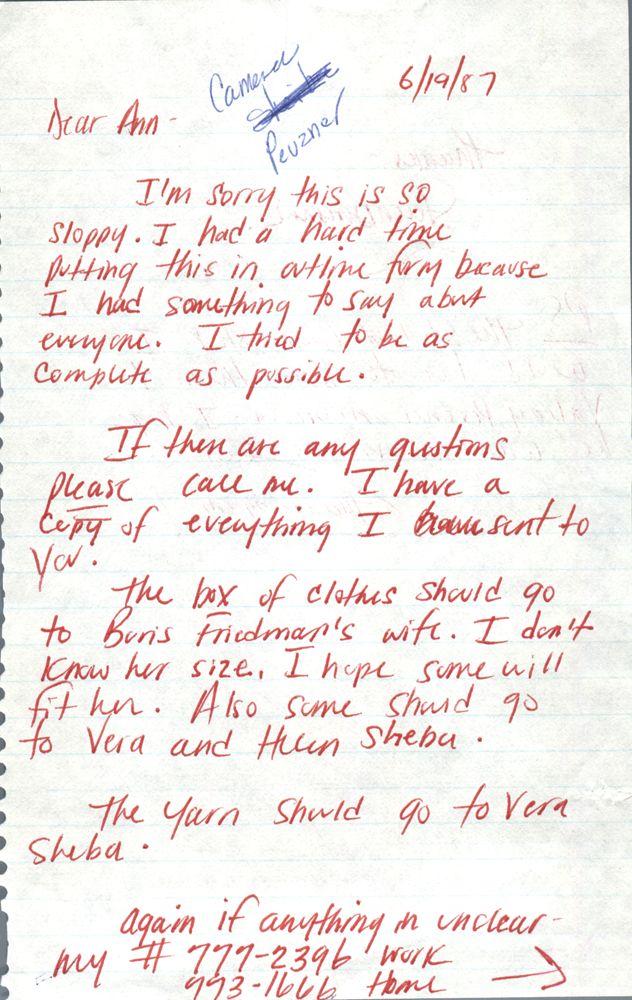 6/19/87
Camera
Peuzner
Dear Ann -
I'm sorry this is so
sloppy. I had a hard time
putting this in outline form because
I had something to say about
everyone. I tried to be as
complete as possible.
If there are any qustions
please call me. I have a
copy of everything I sent to
you.
The box of clothes should go
to Boris Friedman's wife. I don't
know her size. I hope some will
fit her. Also some should go
to Vera and Helen Sheba.
The yarn should go to Vera
Sheba.
again if anything in unclear -
my # 777-2396 work
993-1666 Home →